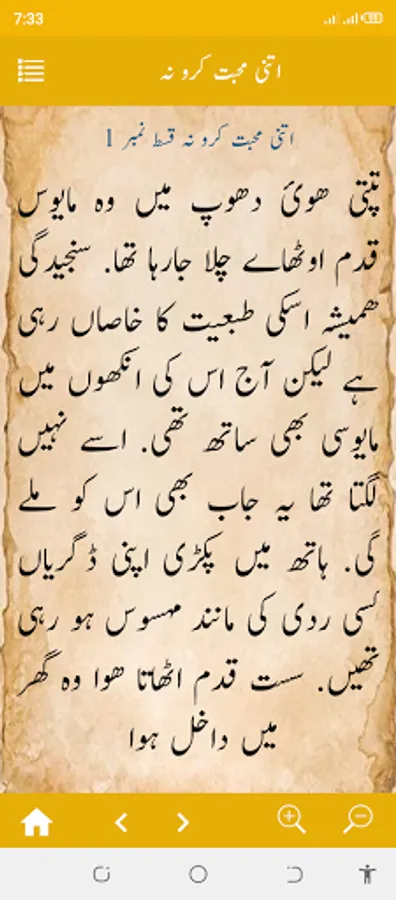 7:33
اتنی محبت کرو نہ
اتنی محبت کرو نہ قسط نمبر 1
تپتی ھوئ دھوپ میں وہ مایوس
قدم اوٹھاے چلا جارہا تھا. سنجیدگی
ھمیشہ اسکی طبعیت کا خاصاں رہی
ہے لیکن آج اس کی انکھوں میں
مایوسی بھی ساتھ تھی. اسے نہیں
لگتا تھا یہ جاب بھی اس کو ملے
گی. ہاتھ میں پکڑی اپنی ڈگریاں
کسی ردی کی مانند مہسوس ہو رہی
تھیں. ست قدم اٹھاتا ھوا وہ گھر
میں داخل ہوا